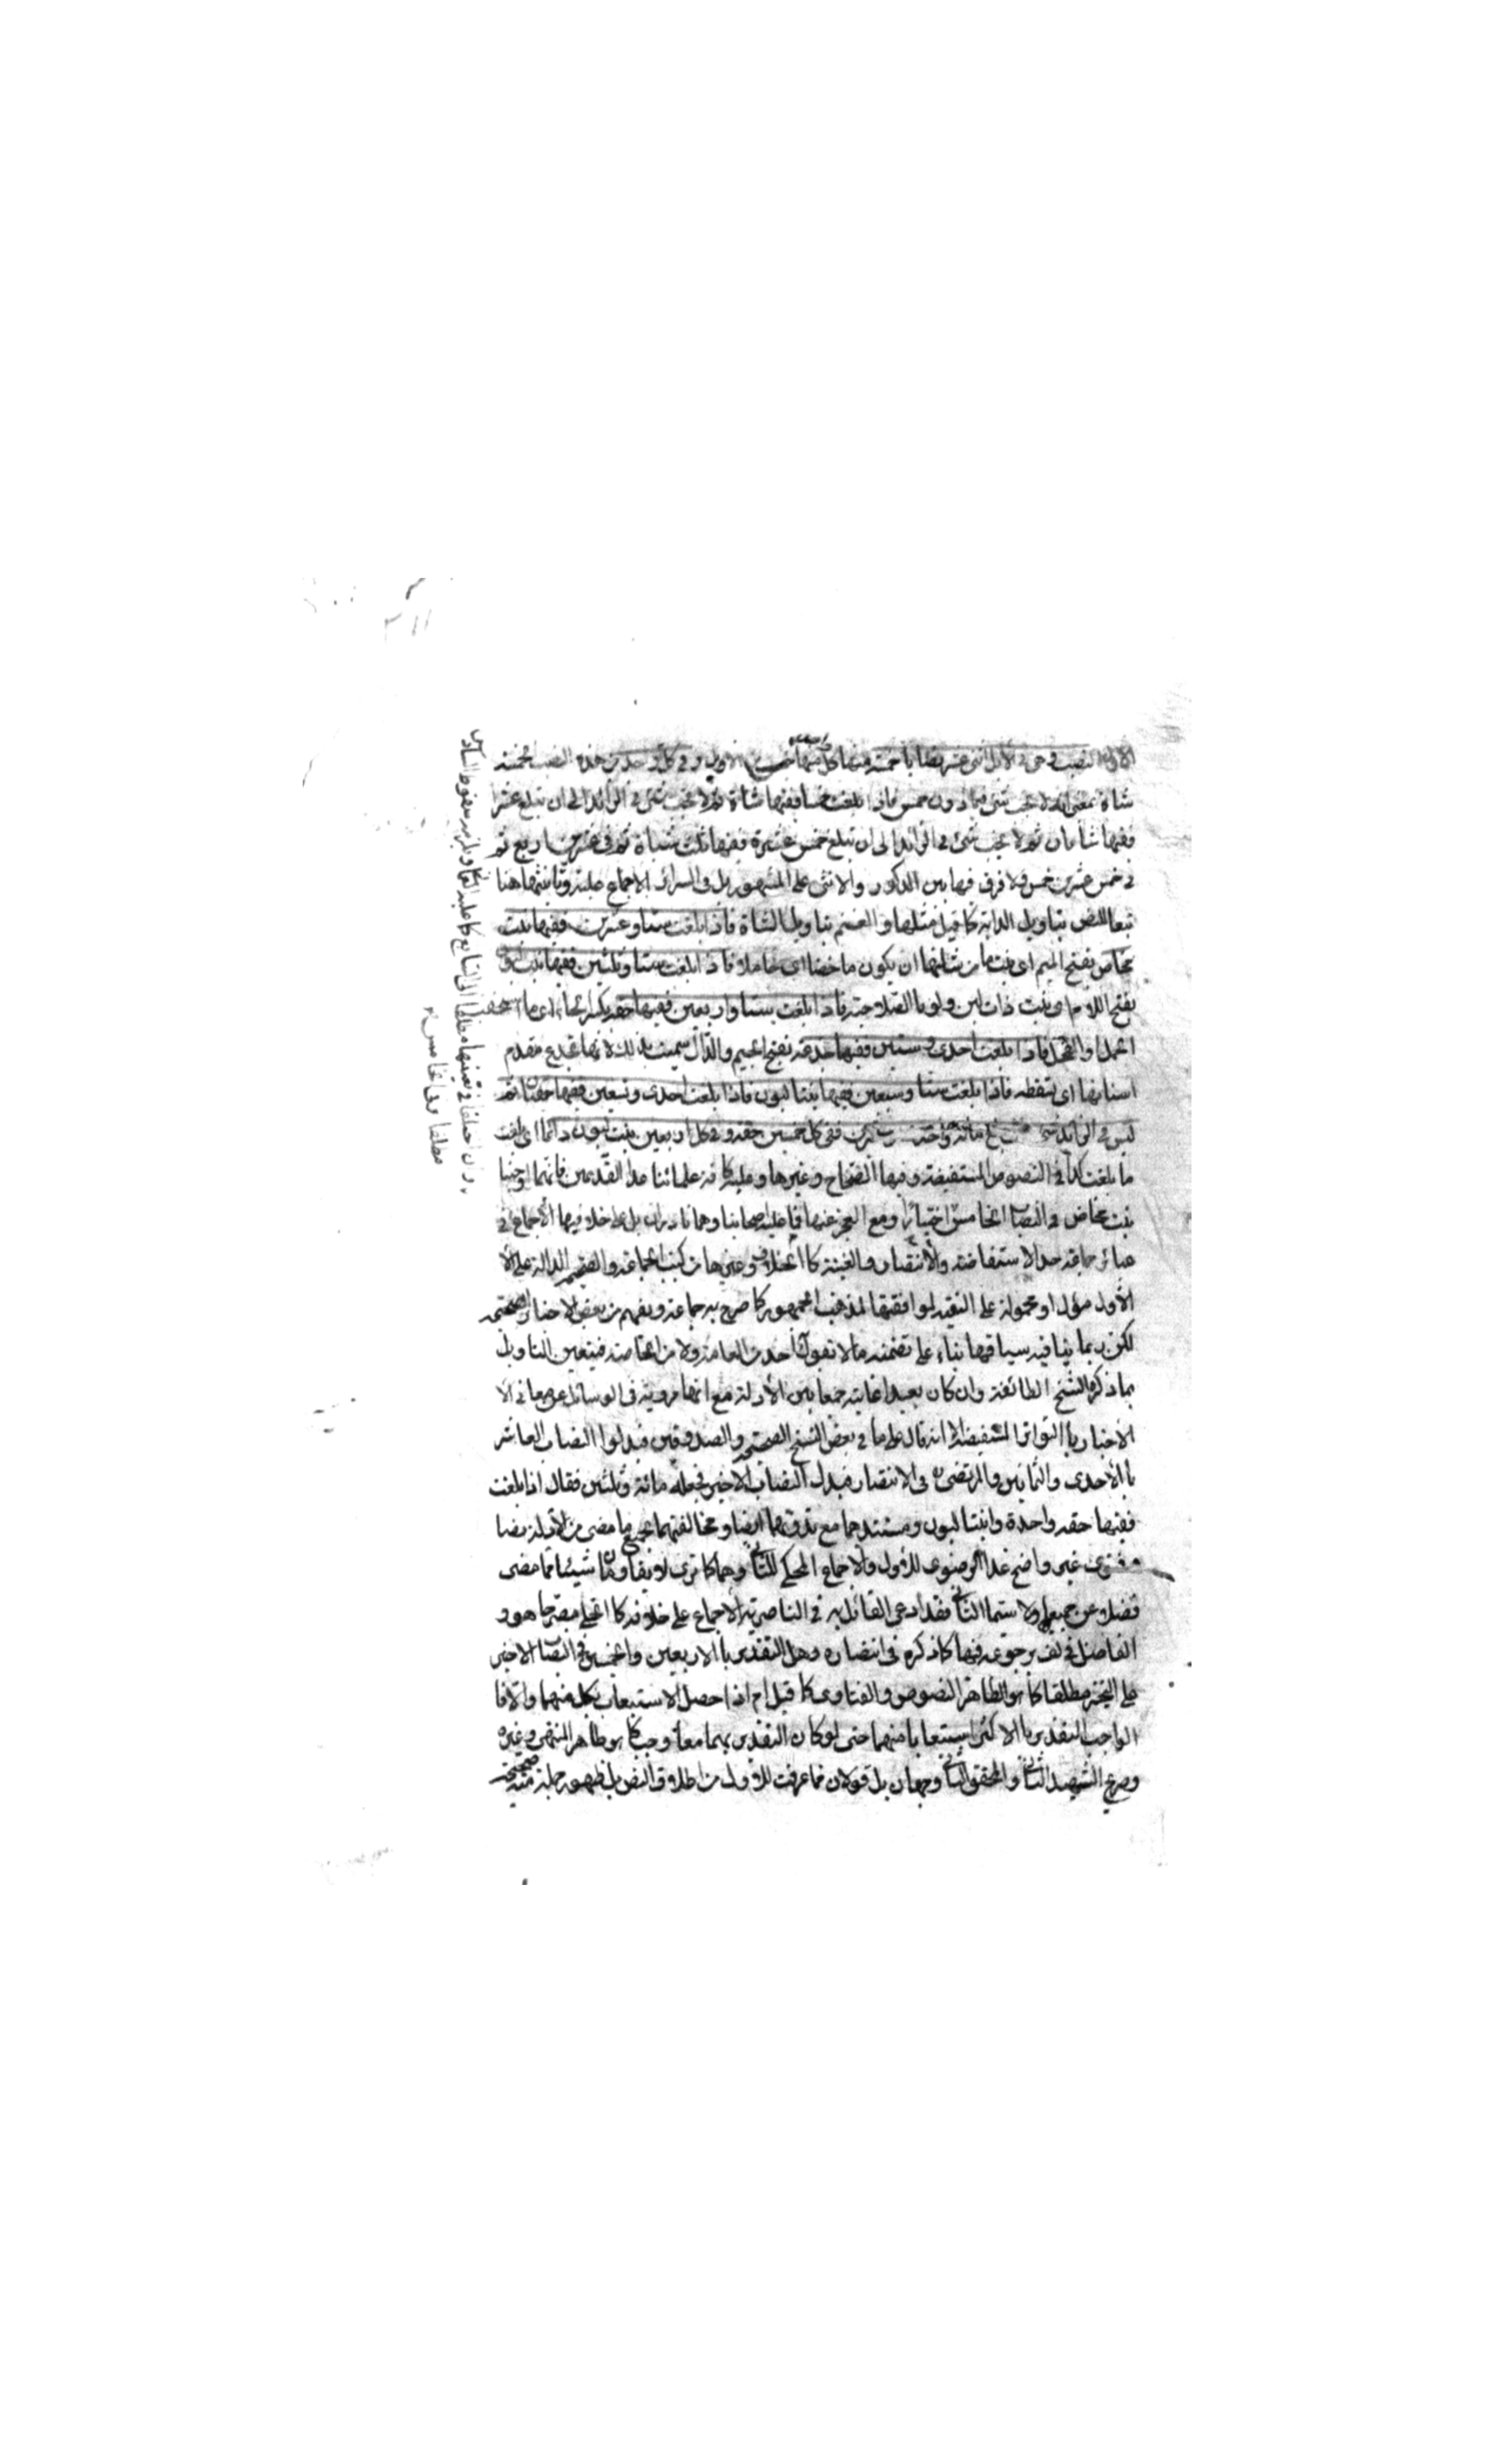 الاول النصب وهي في الابل اثني عشر نصابا خمسة منها كل منها خمس من الابل وفي كل واحد من هذه النصب الخمسة
شاة بمعنى انه لا يجب شئ فيما دون خمس فاذا بلغت خمسا ففيها شاة ثم لا يجب شئ في الزائد الى ان تبلغ عشرا
ففيها شاتان ثم لا يجب شئ في الزائد الى ان تبلغ خمس عشرة ففيها ثلث شياة ثم في عشرين اربع ثم
في خمس عشرين خمس ولا فرق فيها بين الذكور والانثى على المشهور بل في السرائر الاجماع عليه وتانيثها هنا
تبعا للنص بتاويل الدابة كما قيل مثلها والغنم بتاويل الشاة فاذا بلغت ستا وعشرين ففيها بنت
مخاض بفتح الميم اى بنت ما من شانها ان يكون ماخضا اى حاملا فاذا بلغت ستا وثلثين ففيها بنت لبون
بفتح اللام اى بنت ذات لبن ولو بالصلاحية فاذا بلغت ستا واربعين ففيها حقه بكسر الحاء اى ما استحقت
الحمل او الفحل فاذا بلغت احدى وستين ففيها جذعة بفتح الجيم والذال سميت بذلك لانها تجذع مقدم
اسنانها اى تسقطه فاذا بلغت ستا وسبعين ففيها بنتا لبون فاذا بلغت احدى وتسعين ففيها حقتان ثم
ليس في الزائد شئ حتى تبلغ مائة واحدى وعشرين ففي كل خمسين حقه وفي كل اربعين بنت لبون دائما اى بلغت
ما بلغت كما في النصوص المستفيضة وفيها الصحاح وغيرها وعليه كافة علمائنا عدا القديمين فانهما اوجبا
بنت مخاض في النصاب الخامس اختيارا ومع العجز عنها فما عليه اصحابنا وهما نادران بل على خلافهما الاجماع في
عبائر جماعة حد الاستفاضة والانتصار والغنية كالخلاف وغيرها من كتب الجماعة والصحيحة الدالة على
الاول مؤول او محمولة على التقية لموافقتها لمذهب الجمهور كما صرح به جماعة ويفهم من بعض الاخبار الصحيحة
لكن ربما ينافيه سياقها بناء على تضمنه ما لا تقول به احد من العامة ولا من الخاصة فيتعين التاويل
بما ذكره الشيخ الطائفة وان كان بعيدا غايته جمعا بين الادلة مع انها مروية في الوسائل عن معاني الا
الاخبار بالتواتر المستفيضة الا انه قال على ما في بعض النسخ الصحيحة والصدوقين فبدلوا النصاب العاشر
بالاحدى والثمانين والمرتضى في الانتصار فبدل النصاب الاخير فجعله مائة وثلثين فقال اذا بلغت
ففيها حقه واحدة وابنتا لبون ومستندهما مع ندرتهما ايضا ومخالفتهما لجميع ما مضى من الادلة نصا
وفتوى غير واضح عدا الرضوى للاول والاجماع المحكي للثاني وهما كما ترى لا يقاومان شيئا مما مضى
فضلا عن جميعها ولا سيما الثاني فقد ادعى القائل به في الناصرية الاجماع على خلافه كالحلي مصرحا هو و
الفاضل في لف برجوعه فيها كما ذكره في انتصاره وهل التقدير بالاربعين والخمسين في النصاب الاخير
على التخيير مطلقا كما هو الظاهر النصوص والفتاوى كما قيل ام اذا حصل الاستيعاب بكل منهما والا فا
الواجب التقدير بالاكثر استيعابا منهما حتى لو كان التقدير بهما معا وجب كما هو ظاهر المنتهى وغيره
وصريح الشهيد الثاني والمحقق الثاني وجهان بل قولان فما عرفت للاول من اطلاق النص بل ظهور جملة منه